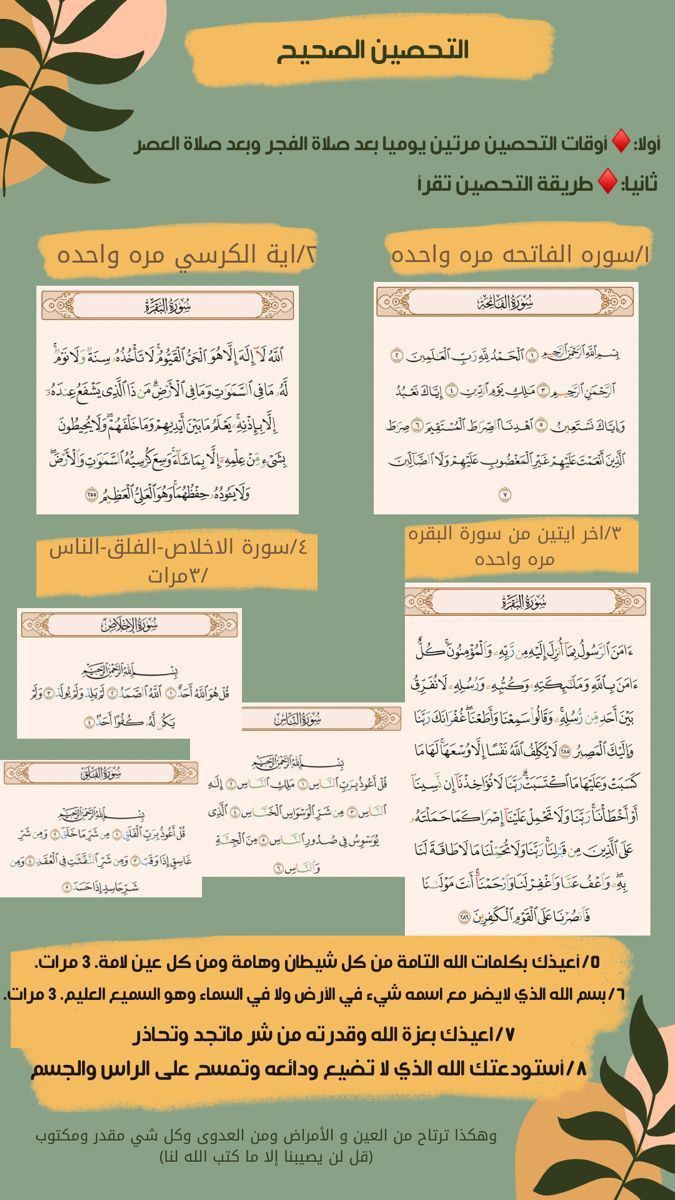 التحصين الصحيح
أولا:♦️أوقات التحصين مرتين يوميا بعد صلاة الفجر وبعد صلاة العصر
ثانيا:♦️طريقة التحصين تقرأ
١/سوره الفاتحه مره واحده
سُورَةُ الفَاتِحَةِ
بِسْمِ ٱللَّهِ ٱلرَّحْمَٰنِ ٱلرَّحِيمِ ١ ٱلْحَمْدُ لِلَّهِ رَبِّ ٱلْعَٰلَمِينَ ٢
ٱلرَّحْمَٰنِ ٱلرَّحِيمِ ٣ مَٰلِكِ يَوْمِ ٱلدِّينِ ٤ إِيَّاكَ نَعْبُدُ
وَإِيَّاكَ نَسْتَعِينُ ٥ ٱهْدِنَا ٱلصِّرَٰطَ ٱلْمُسْتَقِيمَ ٦ صِرَٰطَ
ٱلَّذِينَ أَنْعَمْتَ عَلَيْهِمْ غَيْرِ ٱلْمَغْضُوبِ عَلَيْهِمْ وَلَا ٱلضَّآلِّينَ
٧
٢/اية الكرسي مره واحده
سُورَةُ البَقَرَةِ
ٱللَّهُ لَآ إِلَٰهَ إِلَّا هُوَ ٱلْحَىُّ ٱلْقَيُّومُ ۚ لَا تَأْخُذُهُۥ سِنَةٌ وَلَا نَوْمٌ ۚ
لَّهُۥ مَا فِى ٱلسَّمَٰوَٰتِ وَمَا فِى ٱلْأَرْضِ ۗ مَن ذَا ٱلَّذِى يَشْفَعُ عِندَهُۥٓ
إِلَّا بِإِذْنِهِۦ ۚ يَعْلَمُ مَا بَيْنَ أَيْدِيهِمْ وَمَا خَلْفَهُمْ ۖ وَلَا يُحِيطُونَ
بِشَىْءٍ مِّنْ عِلْمِهِۦٓ إِلَّا بِمَا شَآءَ ۚ وَسِعَ كُرْسِيُّهُ ٱلسَّمَٰوَٰتِ وَٱلْأَرْضَ ۖ
وَلَا يَـُٔودُهُۥ حِفْظُهُمَا ۚ وَهُوَ ٱلْعَلِىُّ ٱلْعَظِيمُ ٢٥٥
٣/اخر ايتين من سورة البقره
مره واحده
سُورَةُ البَقَرَةِ
ءَامَنَ ٱلرَّسُولُ بِمَآ أُنزِلَ إِلَيْهِ مِن رَّبِّهِۦ وَٱلْمُؤْمِنُونَ ۚ كُلٌّ
ءَامَنَ بِٱللَّهِ وَمَلَٰٓئِكَتِهِۦ وَكُتُبِهِۦ وَرُسُلِهِۦ لَا نُفَرِّقُ
بَيْنَ أَحَدٍ مِّن رُّسُلِهِۦ ۚ وَقَالُوا۟ سَمِعْنَا وَأَطَعْنَا ۖ غُفْرَانَكَ رَبَّنَا
وَإِلَيْكَ ٱلْمَصِيرُ ٢٨٥ لَا يُكَلِّفُ ٱللَّهُ نَفْسًا إِلَّا وُسْعَهَا ۚ لَهَا مَا
كَسَبَتْ وَعَلَيْهَا مَا ٱكْتَسَبَتْ ۗ رَبَّنَا لَا تُؤَاخِذْنَآ إِن نَّسِينَآ
أَوْ أَخْطَأْنَا ۚ رَبَّنَا وَلَا تَحْمِلْ عَلَيْنَآ إِصْرًا كَمَا حَمَلْتَهُۥ
عَلَى ٱلَّذِينَ مِن قَبْلِنَا ۚ رَبَّنَا وَلَا تُحَمِّلْنَا مَا لَا طَاقَةَ لَنَا
بِهِۦ ۖ وَٱعْفُ عَنَّا وَٱغْفِرْ لَنَا وَٱرْحَمْنَآ ۚ أَنتَ مَوْلَىٰنَا
فَٱنصُرْنَا عَلَى ٱلْقَوْمِ ٱلْكَٰفِرِينَ ٢٨٦
٤/سورة الاخلاص-الفلق-الناس
/٣مرات
سُورَةُ الإِخْلَاصِ
بِسْمِ ٱللَّهِ ٱلرَّحْمَٰنِ ٱلرَّحِيمِ
قُلْ هُوَ ٱللَّهُ أَحَدٌ ١ ٱللَّهُ ٱلصَّمَدُ ٢ لَمْ يَلِدْ وَلَمْ يُولَدْ ٣ وَلَمْ
يَكُن لَّهُۥ كُفُوًا أَحَدٌۢ ٤
سُورَةُ النَّاسِ
بِسْمِ ٱللَّهِ ٱلرَّحْمَٰنِ ٱلرَّحِيمِ
قُلْ أَعُوذُ بِرَبِّ ٱلنَّاسِ ١ مَلِكِ ٱلنَّاسِ ٢ إِلَٰهِ
ٱلنَّاسِ ٣ مِن شَرِّ ٱلْوَسْوَاسِ ٱلْخَنَّاسِ ٤ ٱلَّذِى
يُوَسْوِسُ فِى صُدُورِ ٱلنَّاسِ ٥ مِنَ ٱلْجِنَّةِ
وَٱلنَّاسِ ٦
سُورَةُ الفَلَقِ
بِسْمِ ٱللَّهِ ٱلرَّحْمَٰنِ ٱلرَّحِيمِ
قُلْ أَعُوذُ بِرَبِّ ٱلْفَلَقِ ١ مِن شَرِّ مَا خَلَقَ ٢ وَمِن شَرِّ
غَاسِقٍ إِذَا وَقَبَ ٣ وَمِن شَرِّ ٱلنَّفَّٰثَٰتِ فِى ٱلْعُقَدِ ٤ وَمِن
شَرِّ حَاسِدٍ إِذَا حَسَدَ ٥
٥/أعيذك بكلمات الله التامة من كل شيطان وهامة ومن كل عين لامة. 3 مرات.
٦/بسم الله الذي لايضر مع اسمه شيء في الأرض ولا في السماء وهو السميع العليم. 3 مرات.
٧/اعيذك بعزة الله وقدرته من شر ماتجد وتحاذر
٨/أستودعتك الله الذي لا تضيع ودائعه وتمسح على الراس والجسم
وهكذا ترتاح من العين و الأمراض ومن العدوى وكل شي مقدر ومكتوب
(قل لن يصيبنا إلا ما كتب الله لنا)